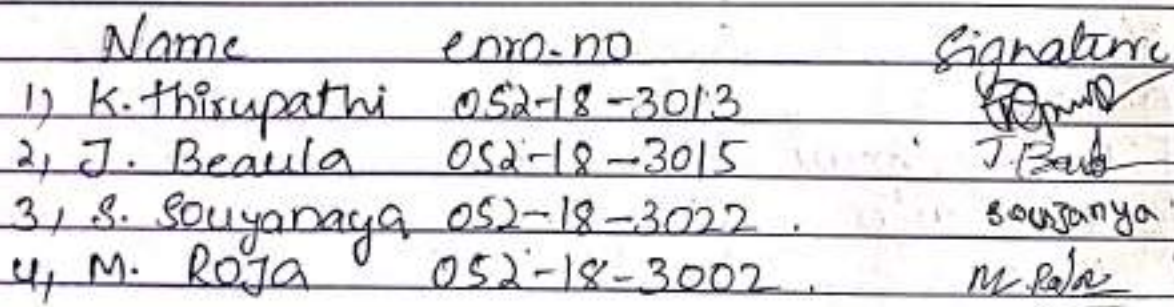 Name enro.no Signature
1) K. thirupathi 052-18-3013
2, J. Beaula 052-18-3015 J. Beaula
3, S. Souyanaya 052-18-3022. Sowjanya
4, M. ROJA 052-18-3002. M. Roja